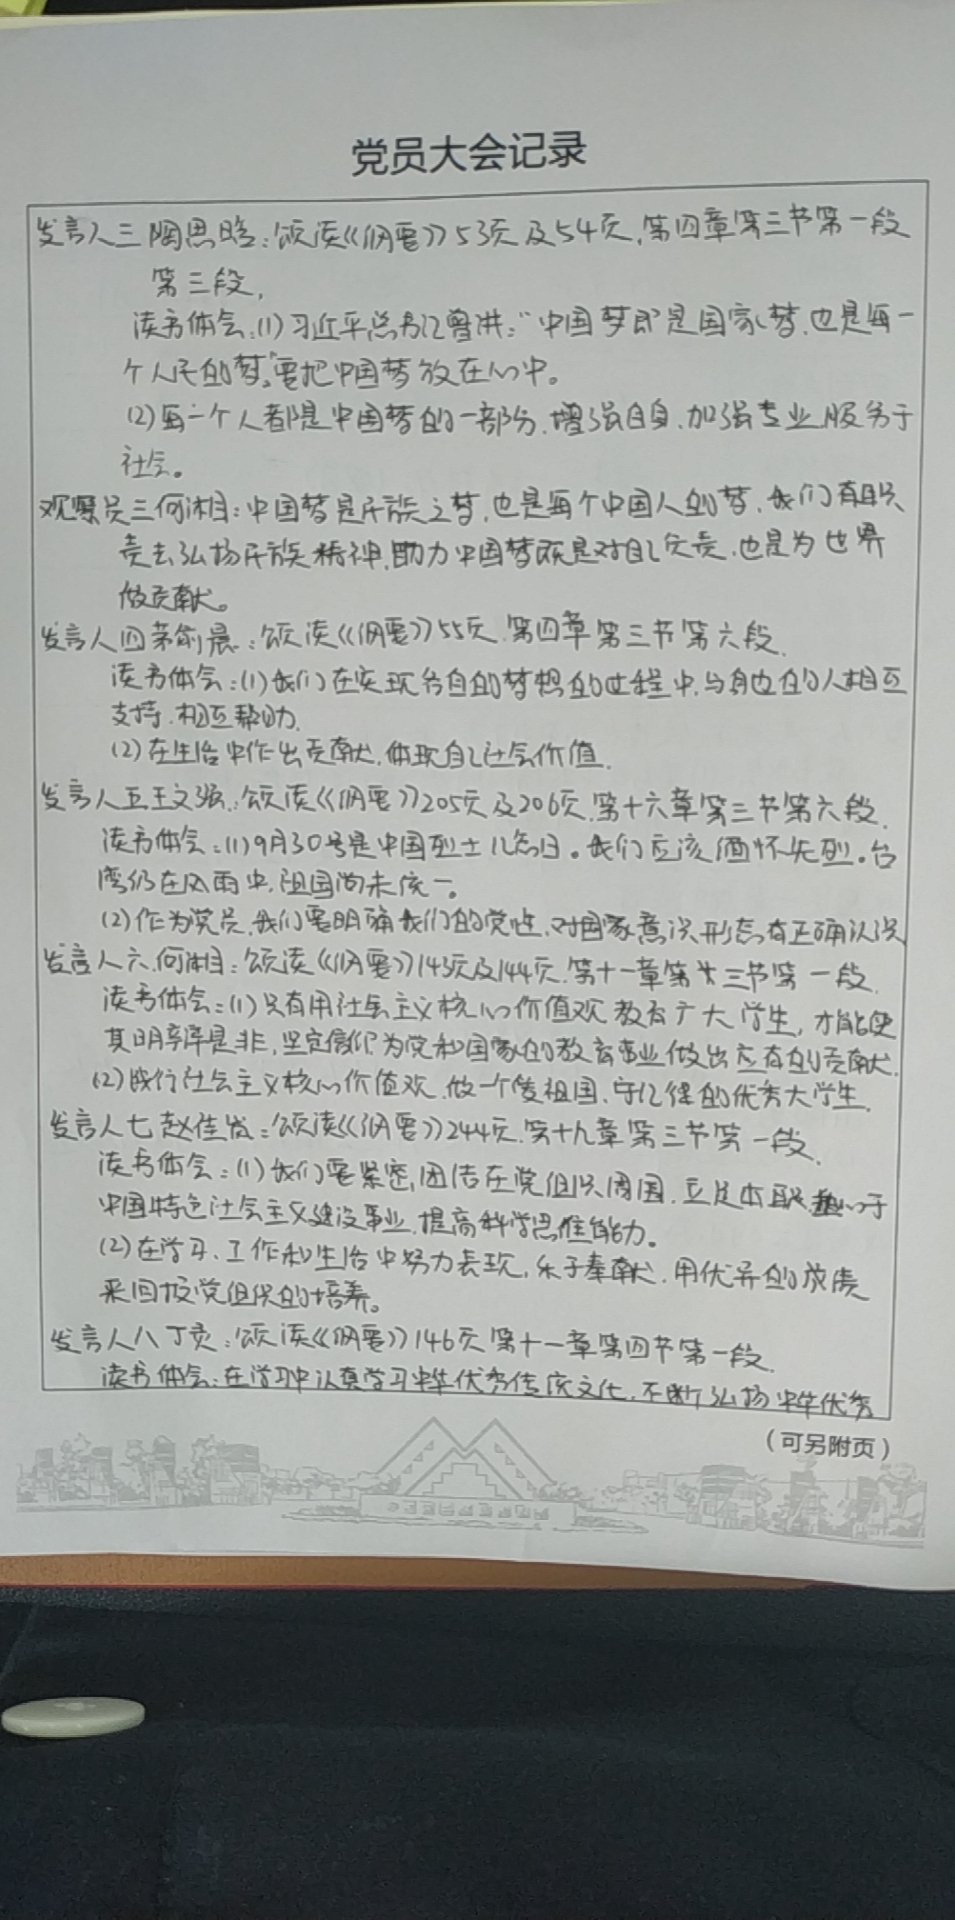 党员大会记录
发言人三陶思晗：颂读《纲要》53页及54页,第四章第三节第一段
第三段,
读书体会:(1)习近平总书记曾讲:“中国梦即是国家梦,也是每一
个人民的梦。”要把中国梦放在心中。
(2)每一个人都是中国梦的一部分,增强自身,加强专业,服务于
社会。
观察员三何湘:中国梦是民族之梦,也是每个中国人的梦,我们有职
责去弘扬民族精神,助力中国梦既是对自己负责,也是为世界
做贡献。
发言人四茅前晨:颂读《纲要》55页,第四章第三节第六段.
读书体会:(1)我们在实现各自的梦想的过程中,与身边的人相互
支持,相互帮助.
(2)在生活中作出贡献,体现自己社会价值.
发言人五王文强:颂读《纲要》205页及206页,第十六章第三节第六段.
读书体会:(1)9月30号是中国烈士纪念日。我们应该缅怀先烈。台
湾仍在风雨中,祖国尚未统一。
(2)作为党员,我们要明确我们的党性,对国家意识形态有正确认识
发言人六.何湘:颂读《纲要》143页及144页.第十一章第三节第一段.
读书体会:(1)只有用社会主义核心价值观教育广大学生,才能使
其明辨是非,坚定信仰为党和国家的教育事业做出应有的贡献.
(2)践行社会主义核心价值观,做一个爱祖国、守纪律的优秀大学生.
发言人七赵佳:颂读《纲要》244页.第十九章第三节第一段.
读书体会:(1)我们要紧密团结在党组织周围,立足本职,心于
中国特色社会主义建设事业,提高科学思维能力。
(2)在学习、工作和生活中努力表现,乐于奉献,用优异的成绩
来回报党组织的培养。
发言人八丁:颂读《纲要》146页第十一章第四节第一段.
读书体会:在学习中认真学习中华优秀传统文化,不断弘扬中华优秀
(可另附页)